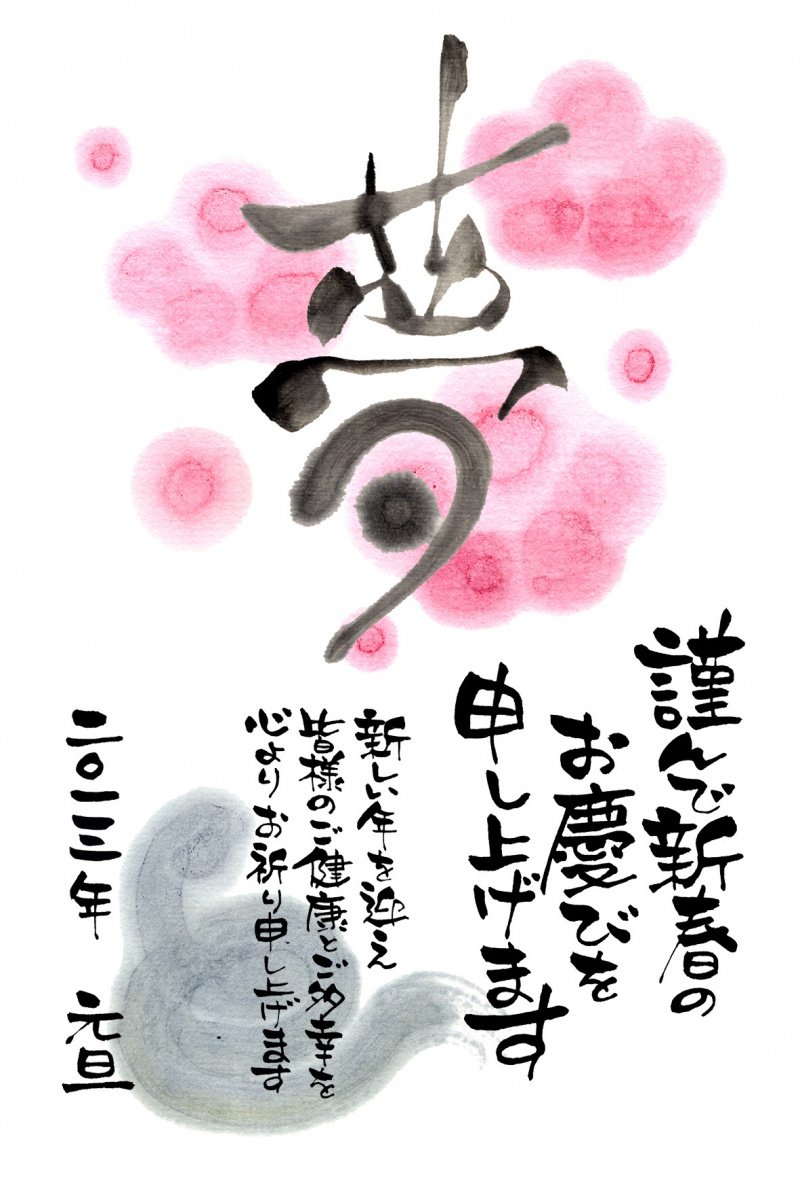 夢
謹んで新春の
お慶びを
申し上げます
新しい年を迎え
皆様のご健康とご多幸を
心よりお祈り申し上げます
二〇一三年 元旦